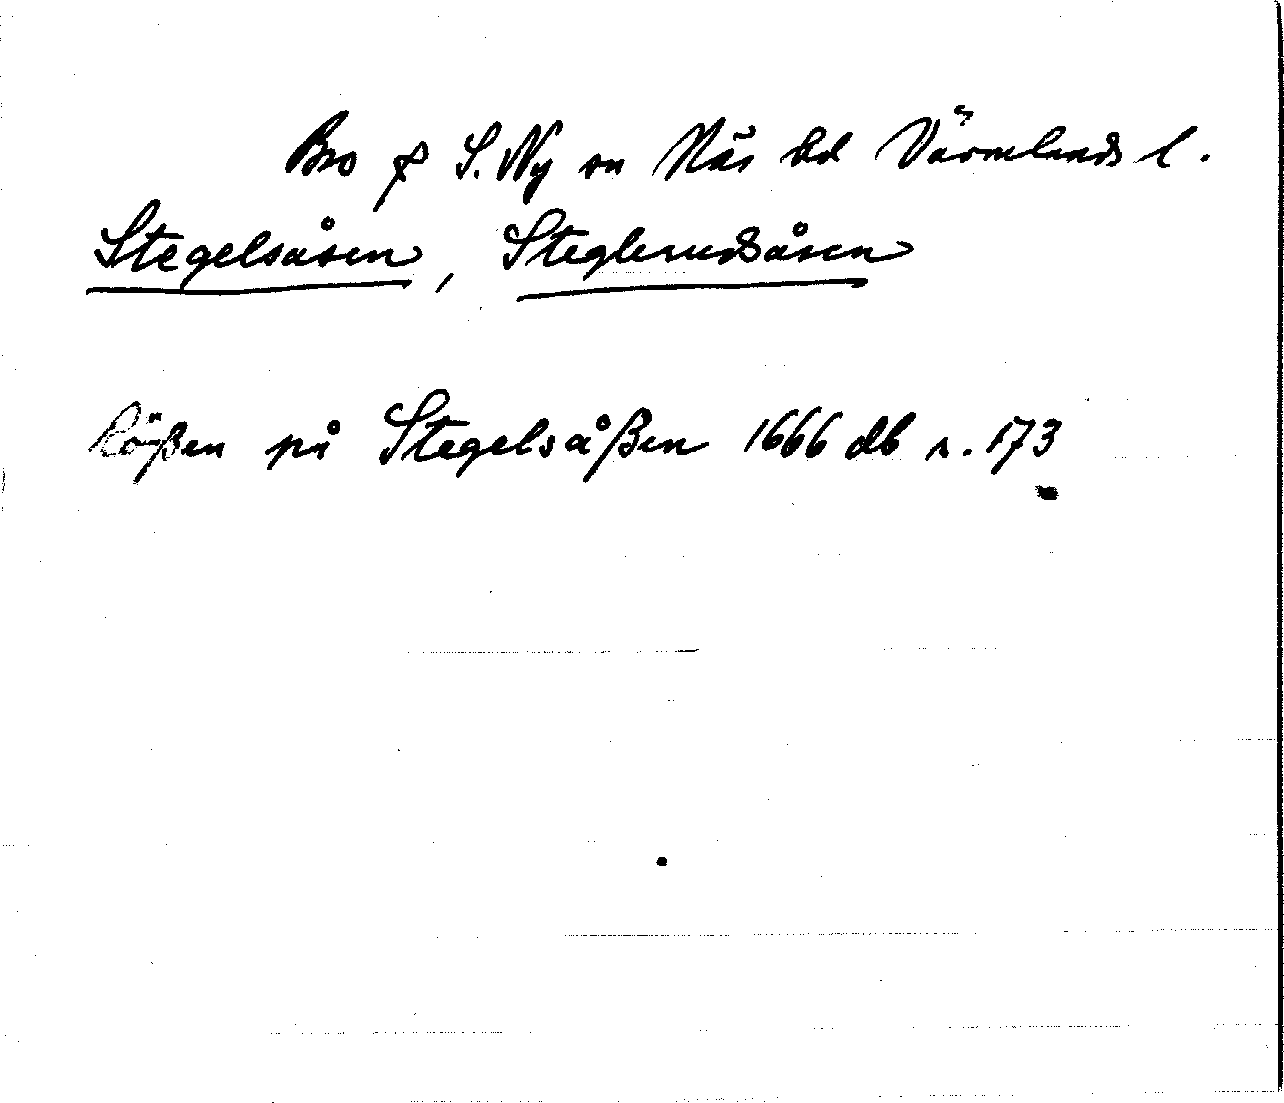 Bro f S. Ny sn Näs hd Värmlands l.
Stegelsåsen, Steglerudsåsen
Rößen på Stegelsåßen 1666 db s. 173